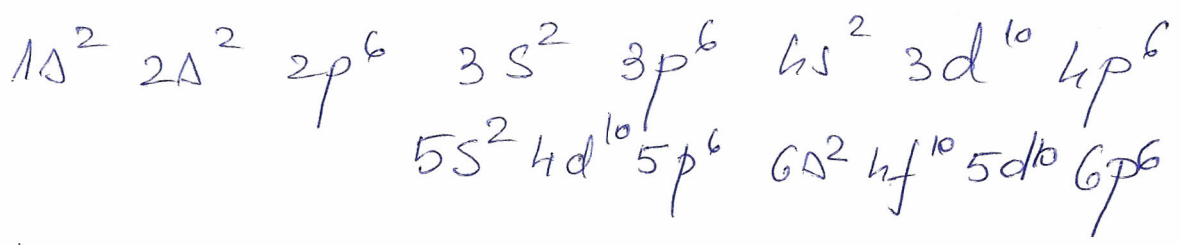 1s² 2s² 2p⁶ 3s² 3p⁶ 4s² 3d¹⁰ 4p⁶
5s² 4d¹⁰ 5p⁶ 6s² 4f¹⁰ 5d¹⁰ 6p⁶